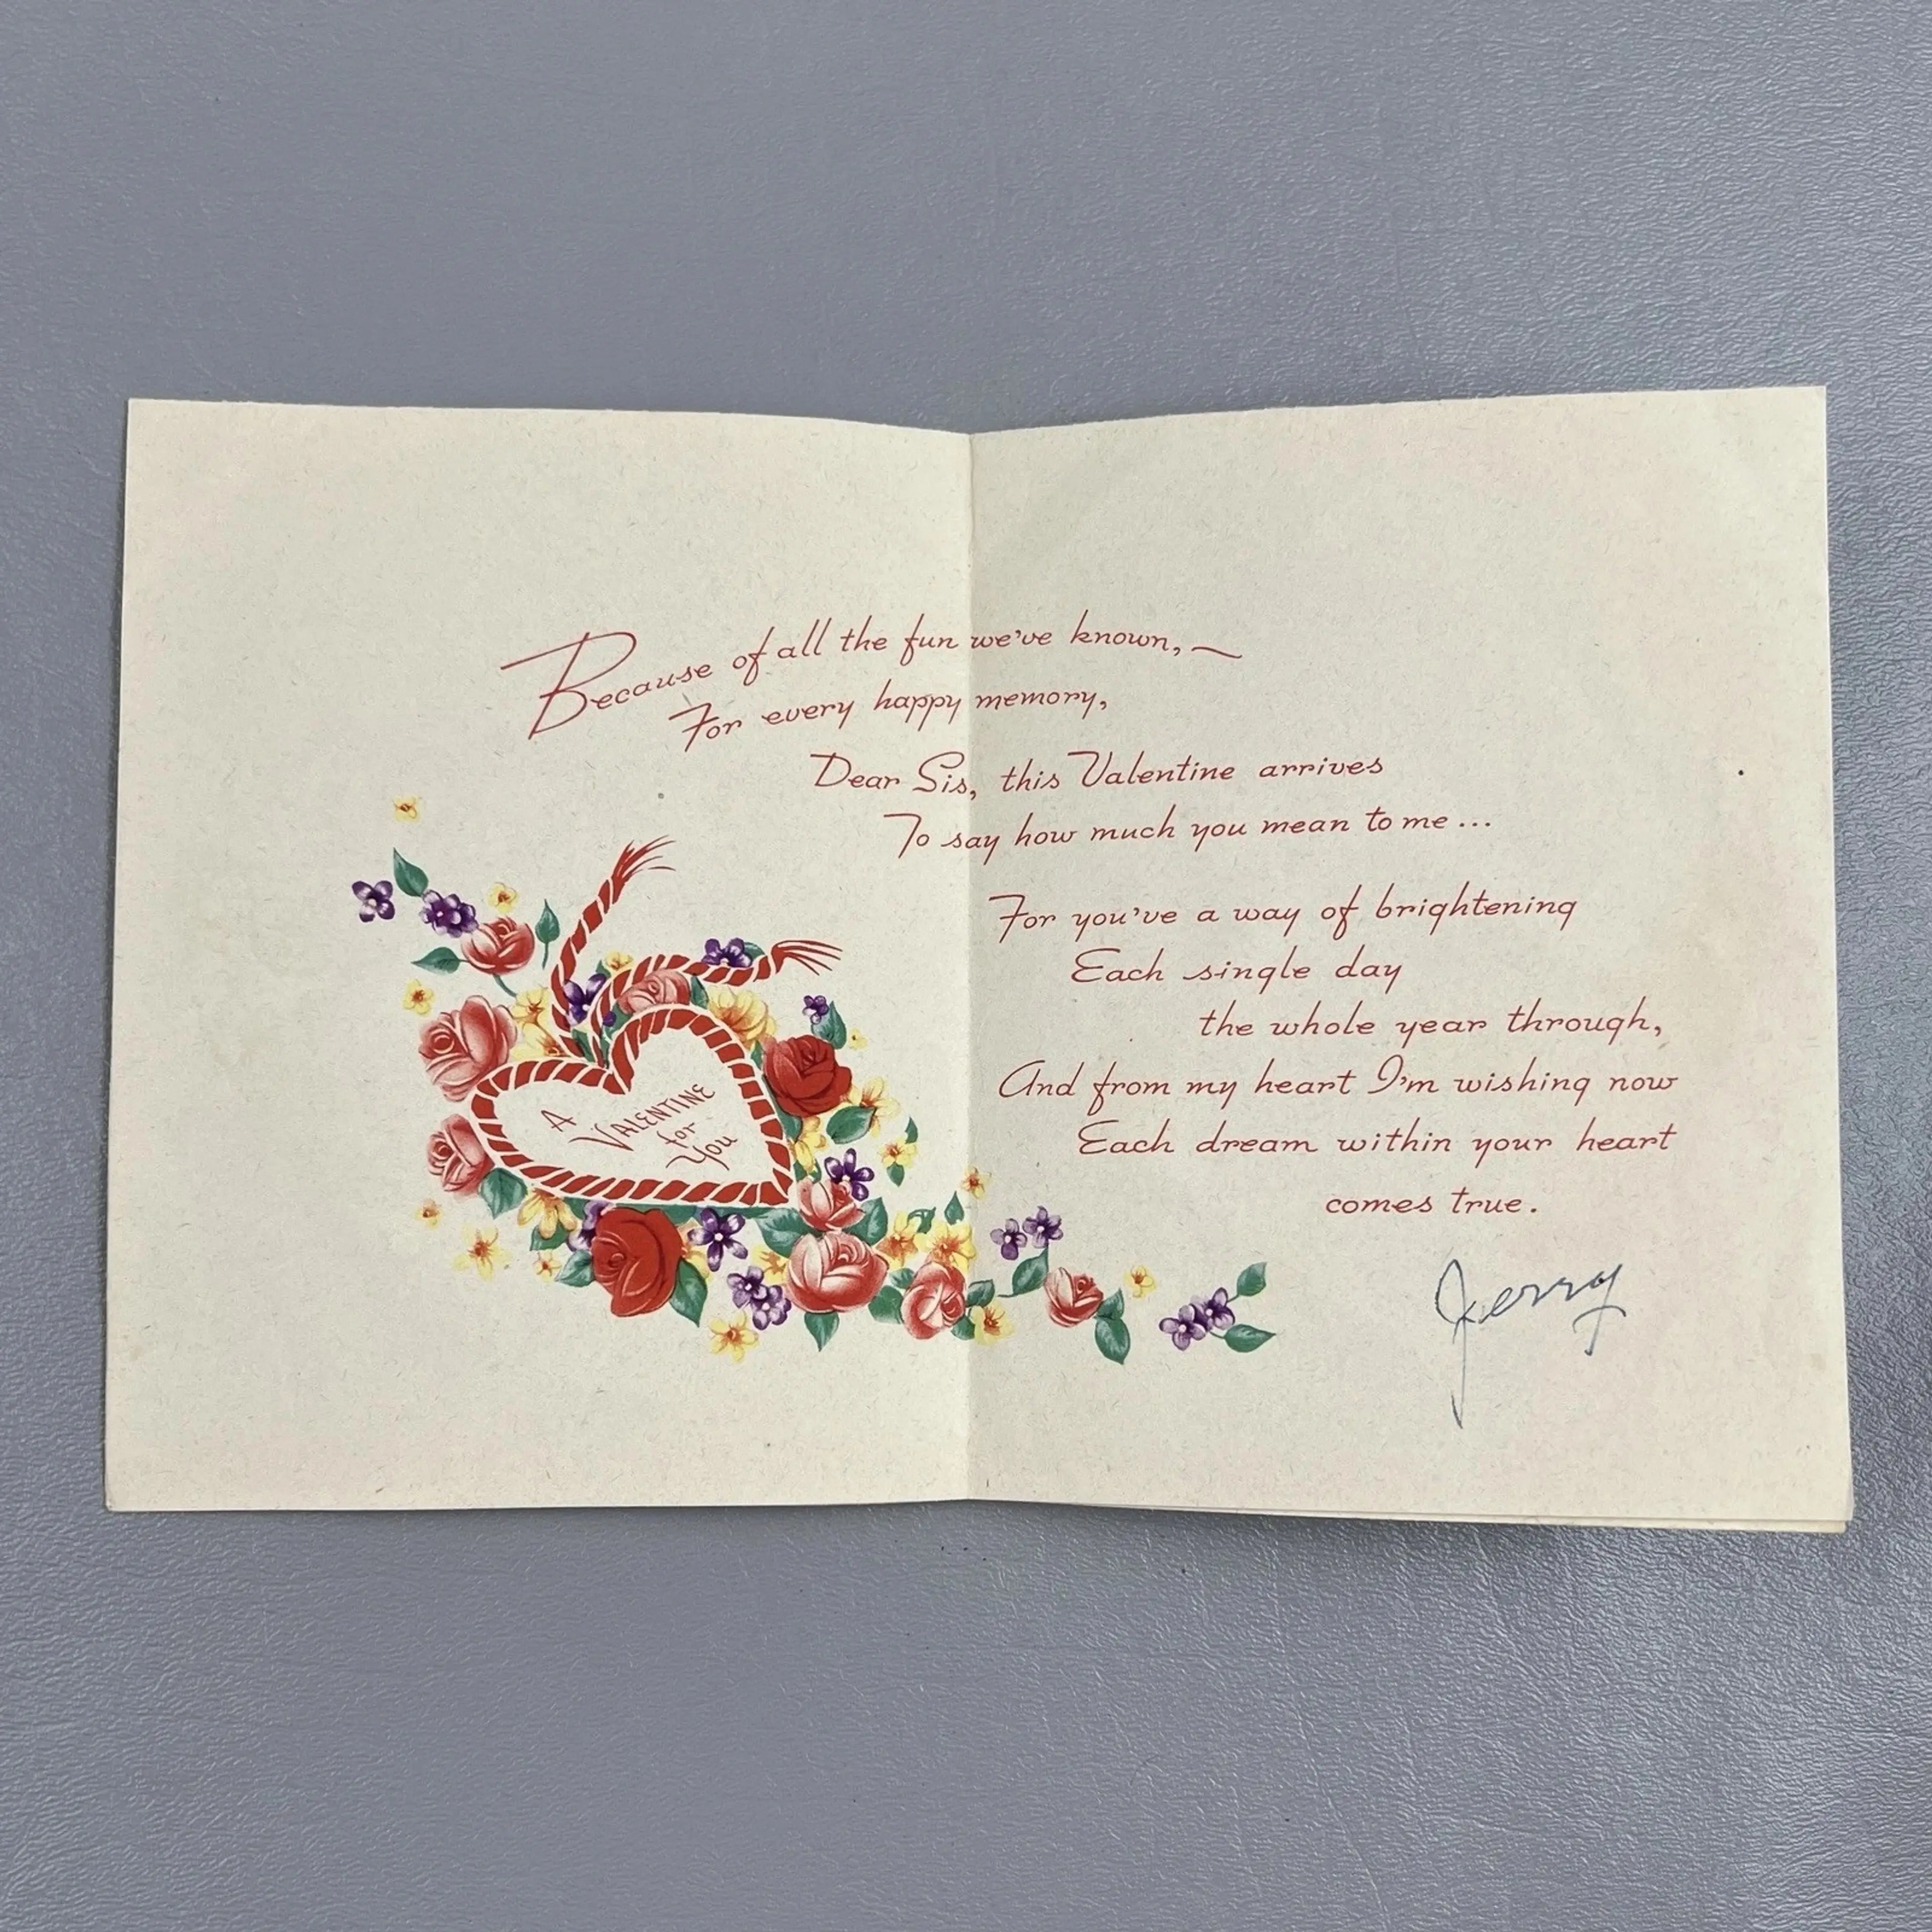 Because of all the fun we've known, ~
For every happy memory,
Dear Sis, this Valentine arrives
To say how much you mean to me...
For you've a way of brightening
Each single day
the whole year through,
And from my heart I'm wishing now
Each dream within your heart
comes true.
Jerry
A
VALENTINE
for
You